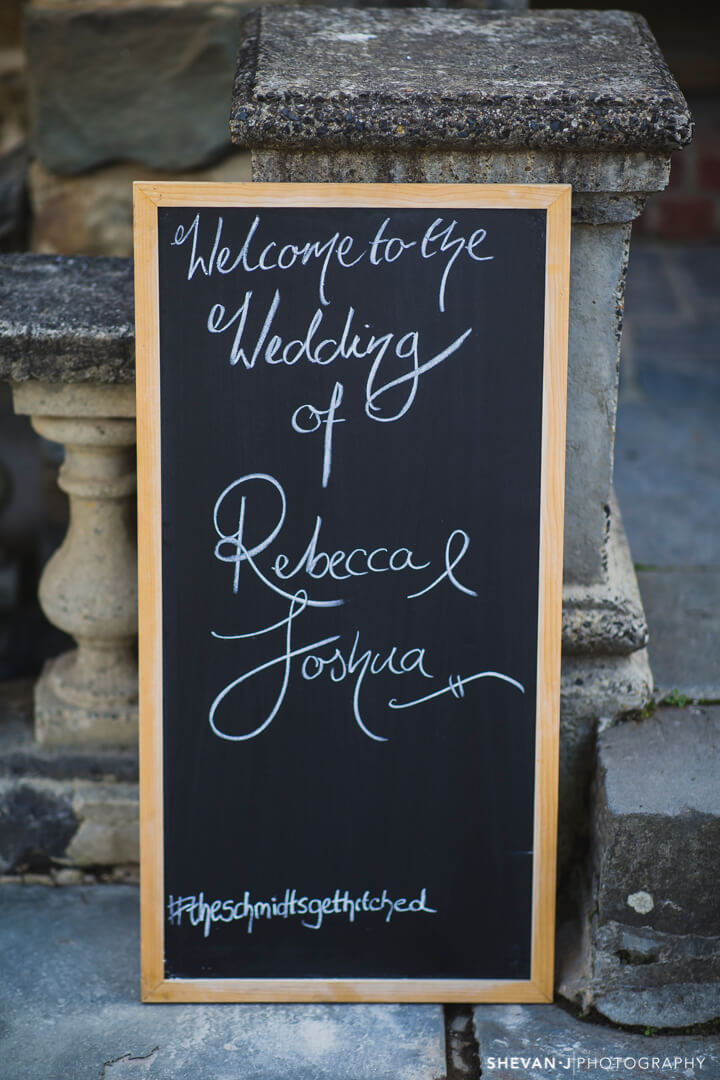 Welcome to the
Wedding
of
Rebecca &
Joshua
#theschmidtsgethitched
SHEVAN·J|PHOTOGRAPHY